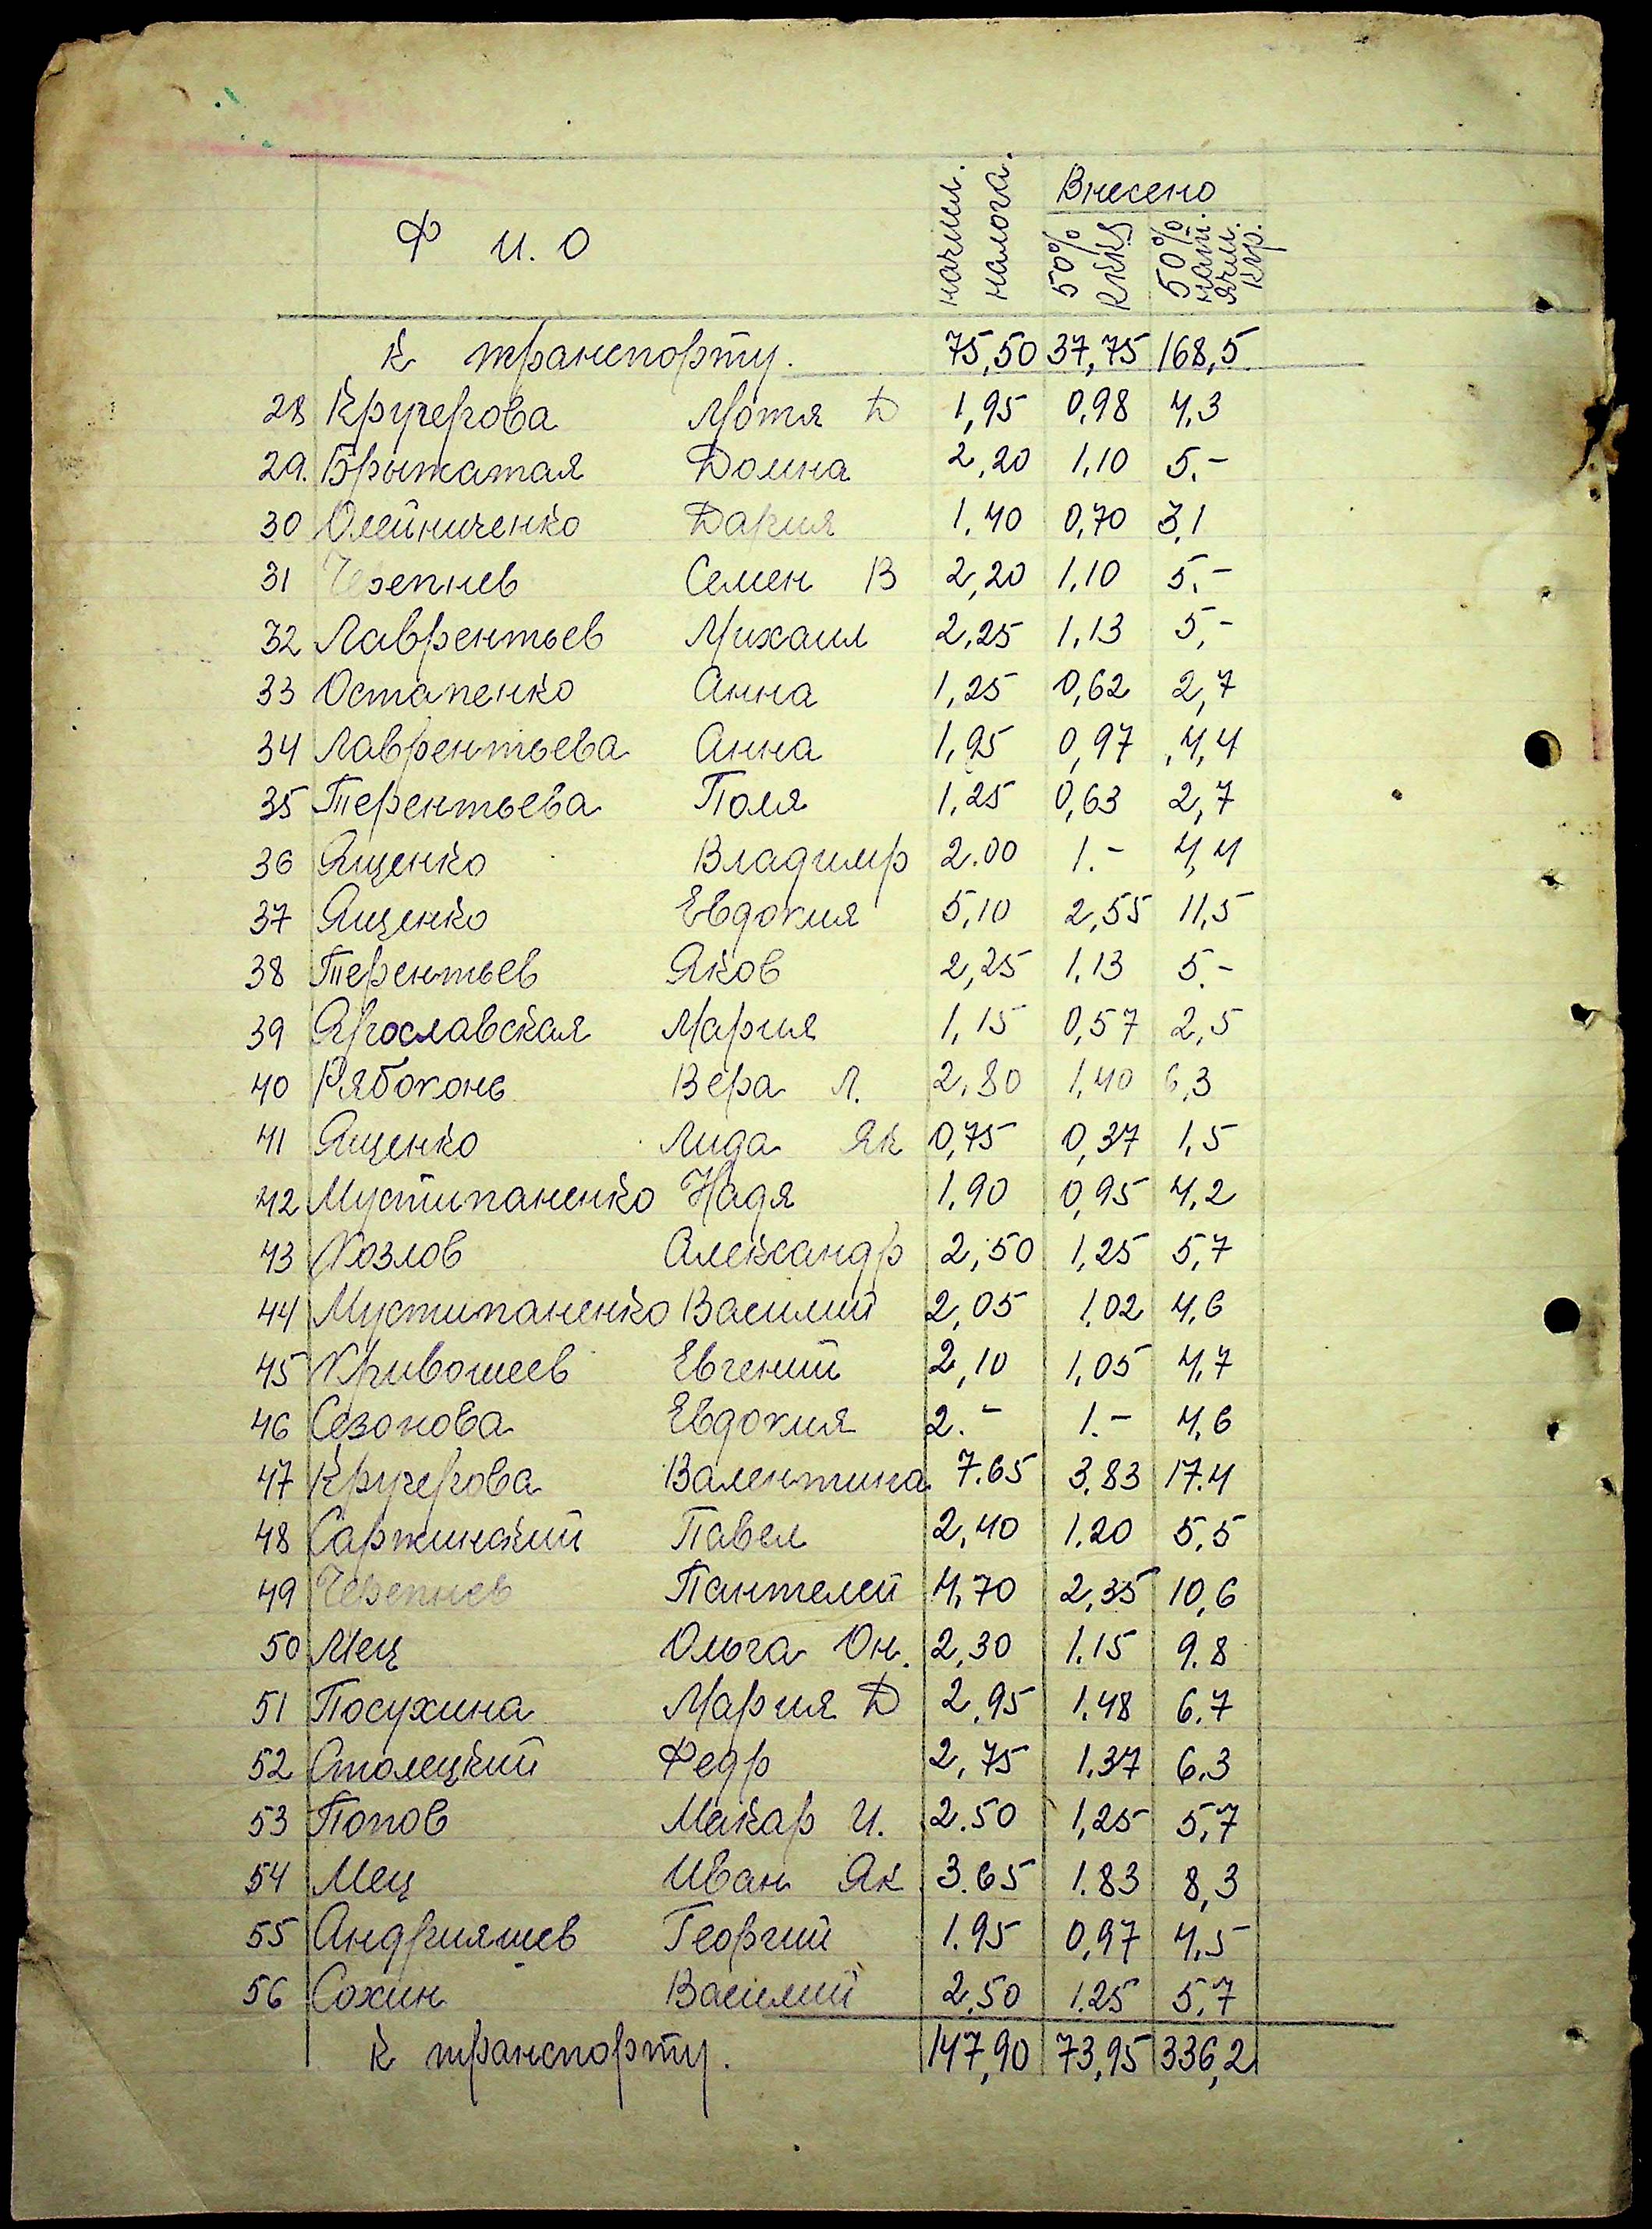 Ф И. О начисл. налога. Внесено
50% ККК 50% нат. ячм. кгр.
к транспорту. 75,50 37,75 168,5
28 Кручерова Мотя Д 1,95 0,98 4,3
29. Брытатая Домна 2,20 1,10 5.-
30 Олейниченко Дария 1,40 0,70 3,1
31 Черепнев Семен В 2,20 1,10 5.-
32 Лаврентьев Михаил 2,25 1,13 5,-
33 Остапенко Анна 1,25 0,62 2,7
34 Лаврентьева Анна 1,95 0,97 4,4
35 Терентьева Поля 1,25 0,63 2,7
36 Ященко Владимир 2.00 1.- 4,4
37 Ященко Евдокия 5,10 2,55 11,5
38 Терентьев Яков 2,25 1,13 5.-
39 Ярославская Мария 1,15 0,57 2,5
40 Рябоконь Вера Л. 2,80 1,40 6,3
41 Ященко Лида Як 0,75 0,37 1,5
42 Мустипаненко Надя 1,90 0,95 4,2
43 Козлов Александр 2,50 1,25 5,7
44 Мустипаненко Василий 2,05 1,02 4,6
45 Кривошеев Евгений 2,10 1,05 4,7
46 Сезонова Евдокия 2.- 1.- 4,6
47 Кручерова Валентина 7.65 3.83 17.4
48 Саржинский Павел 2,40 1.20 5,5
49 Черепнев Пантелей 4,70 2,35 10,6
50 Мец Ольга Он. 2,30 1.15 9.8
51 Посухина Мария Д 2,95 1.48 6.7
52 Столецкий Федр 2,75 1.37 6.3
53 Попов Макар И. 2.50 1,25 5,7
54 Мец Иван Як 3.65 1.83 8,3
55 Андрияшев Георгий 1.95 0,97 4,5
56 Сохин Василий 2,50 1.25 5,7
к транспорту. 147,90 73,95 336,2